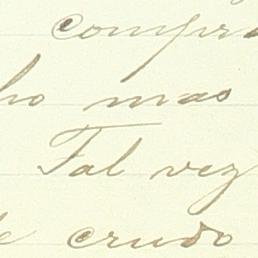 compr
ho mas
Tal vez
de crudo